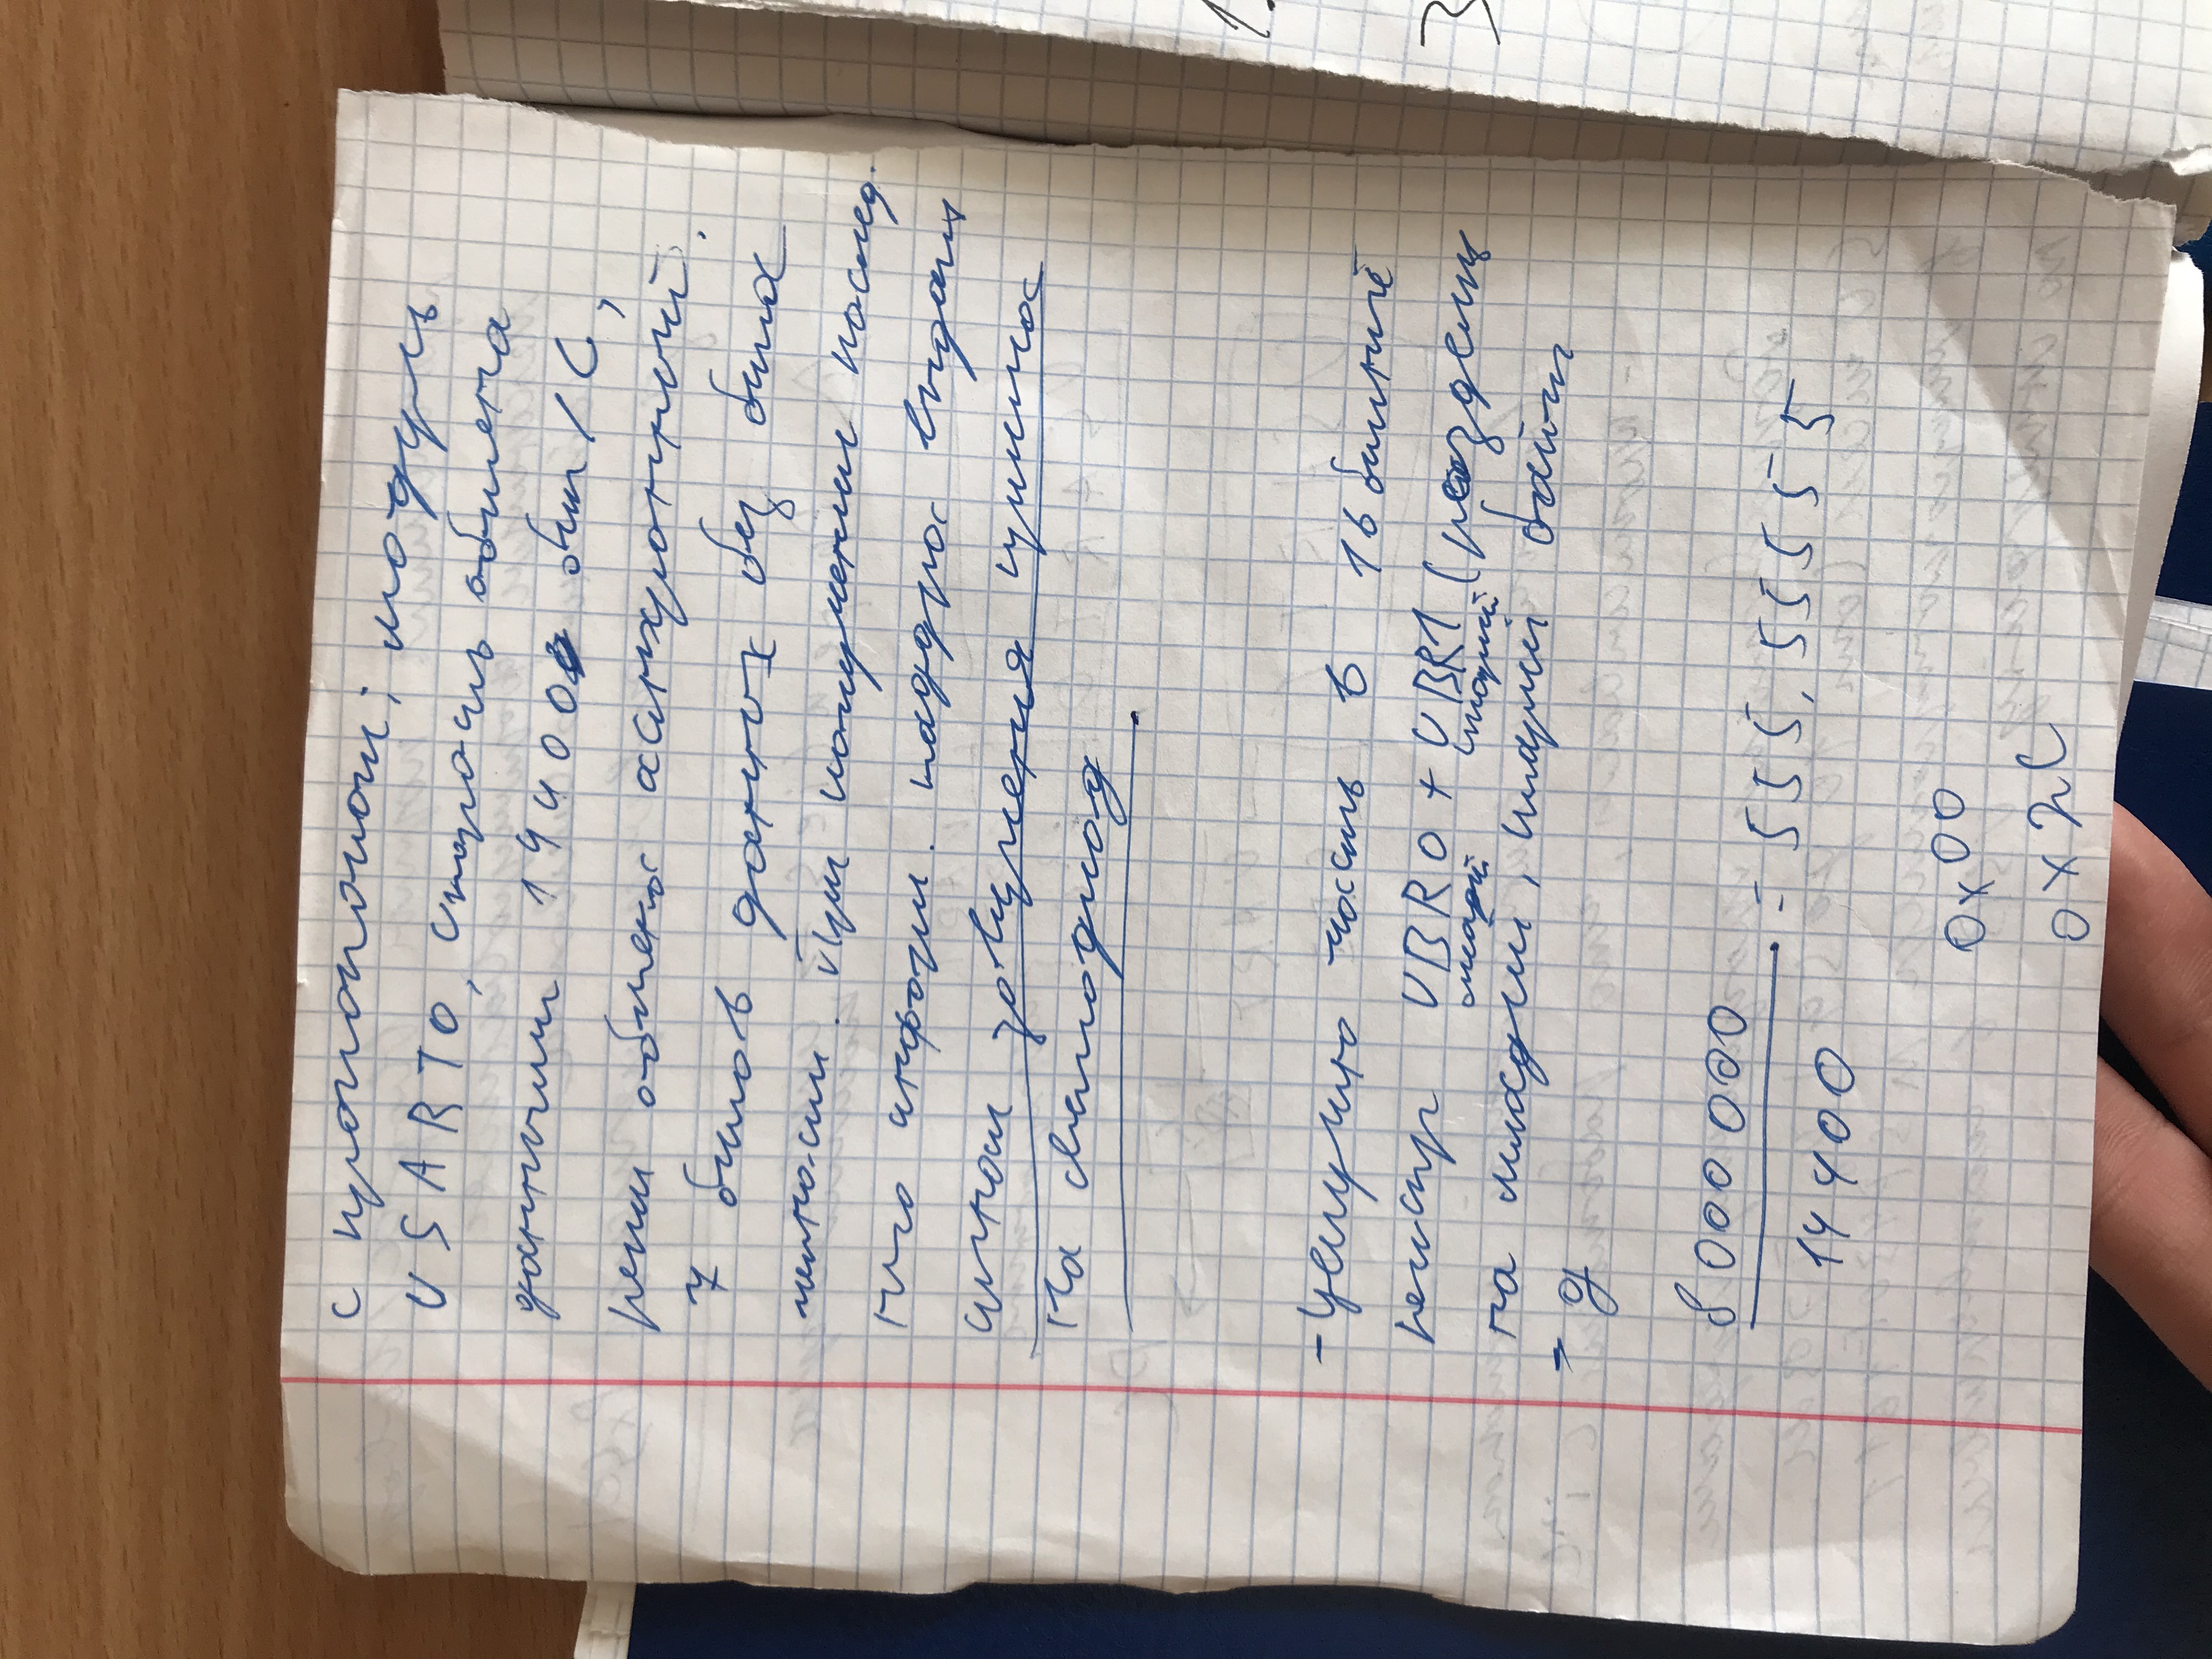 с протоколом; модуль
USART0, скорость обмена
данными 14400 бит/С,
режим обмена асинхронный.
7 битов данных без бита
четности. При получении послед.
него информ. каддра выдать
сигнал завершения приема
на светодиод.
- целую часть в 16 битный
регистр UBR0 + UBR1 (разделить
младший старший
на младший, старший байт
- д
8 000 000
= 555,55555
14400
0x00
0x2C
1.
3